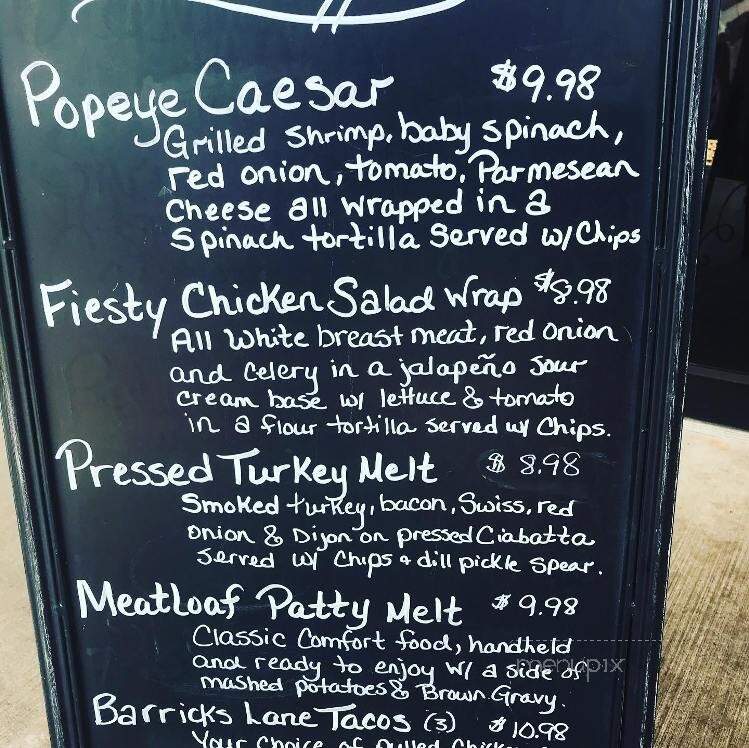 Popeye Caesar $9.98
Grilled Shrimp, baby spinach,
red onion, tomato, Parmesean
Cheese all wrapped in a
Spinach tortilla Served w/ Chips
Fiesty Chicken Salad Wrap $8.98
All White breast meat, red onion
and Celery in a jalapeño sour
cream base w/ lettuce & tomato
in a flour tortilla served w/ Chips.
Pressed Turkey Melt $8.98
Smoked turkey, bacon, Swiss, red
onion & Dijon on pressed Ciabatta
Served w/ Chips & dill pickle spear.
MeatLoaf Patty Melt $9.98
Classic Comfort food, handheld
and ready to enjoy w/ a side of
menupix
mashed potatoes & Brown Gravy.
Barricks Lane Tacos (3) $10.98
Your Choice of Pulled